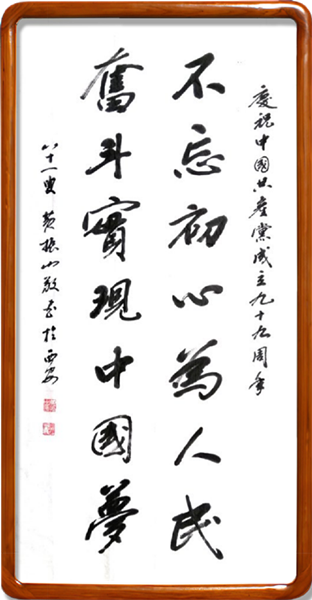 慶祝中國共產黨成立九十九周年
不忘初心為人民
奮斗實現中國夢
八十一叟黄振山敬書於西安